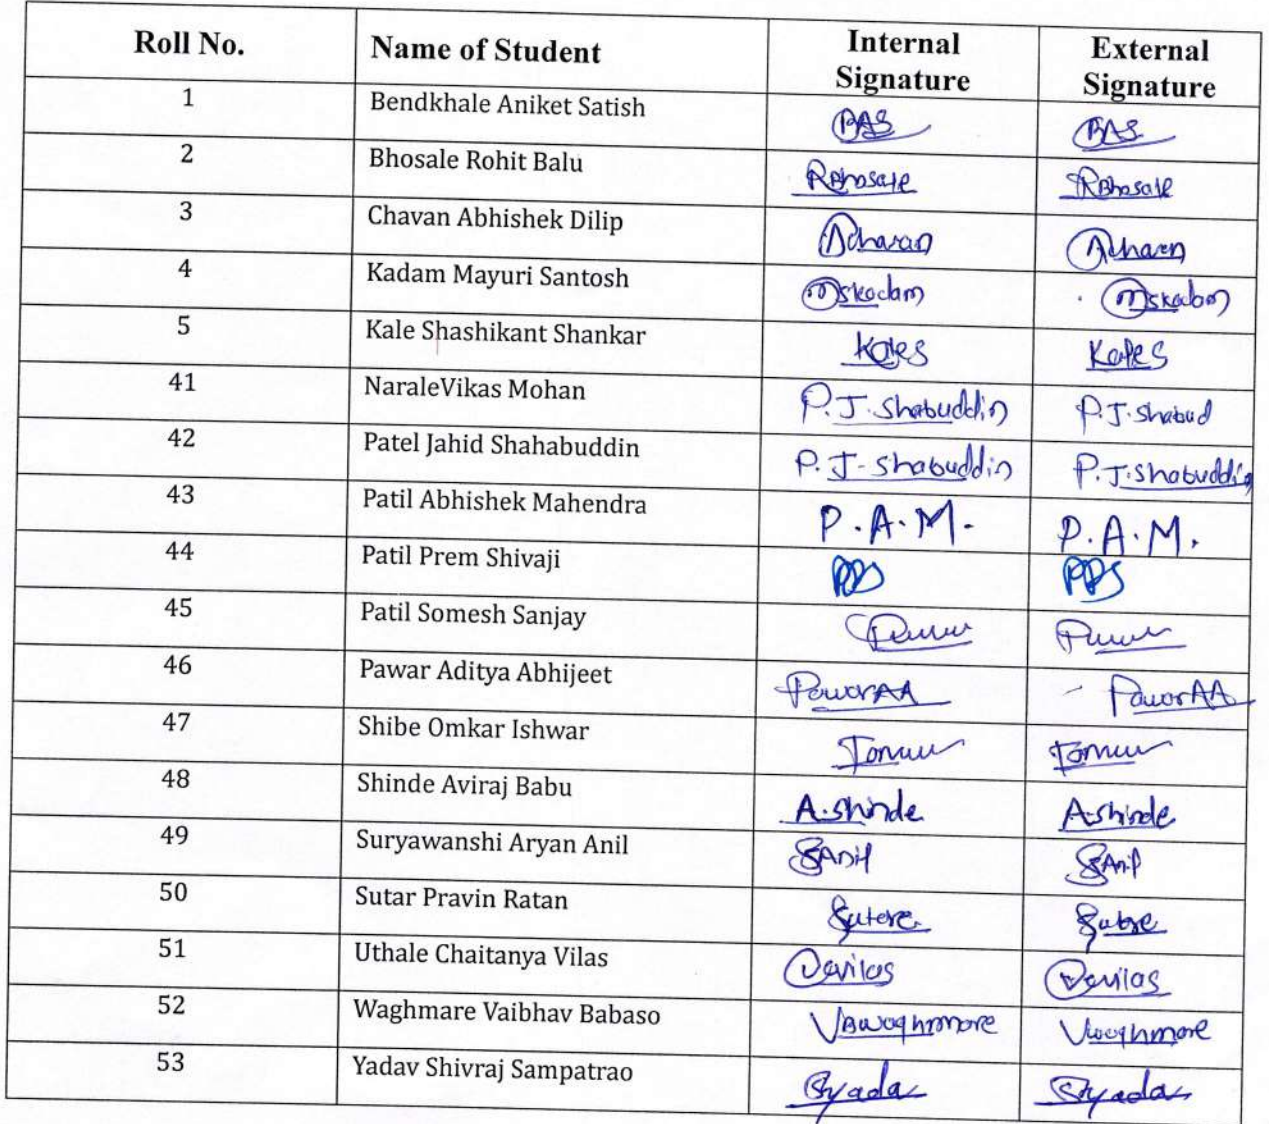 Roll No. Name of Student Internal Signature External Signature
1 Bendkhale Aniket Satish BAS BAS
2 Bhosale Rohit Balu RBhosale RBhosale
3 Chavan Abhishek Dilip AChavan
4 Kadam Mayuri Santosh mskadam mskadam
5 Kale Shashikant Shankar KaleS KaleS
41 NaraleVikas Mohan P.J.Shabuddin P.J.Shabud
42 Patel Jahid Shahabuddin P.J-Shabuddin P.J.Shabuddin
43 Patil Abhishek Mahendra P.A.M. P.A.M.
44 Patil Prem Shivaji PPS PPS
45 Patil Somesh Sanjay
46 Pawar Aditya Abhijeet PawarAA PawarAA
47 Shibe Omkar Ishwar
48 Shinde Aviraj Babu A.shinde A.shinde
49 Suryawanshi Aryan Anil SAnil SAnil
50 Sutar Pravin Ratan
51 Uthale Chaitanya Vilas
52 Waghmare Vaibhav Babaso VBWaghmare Vwaghmare
53 Yadav Shivraj Sampatrao Syadav Syadav